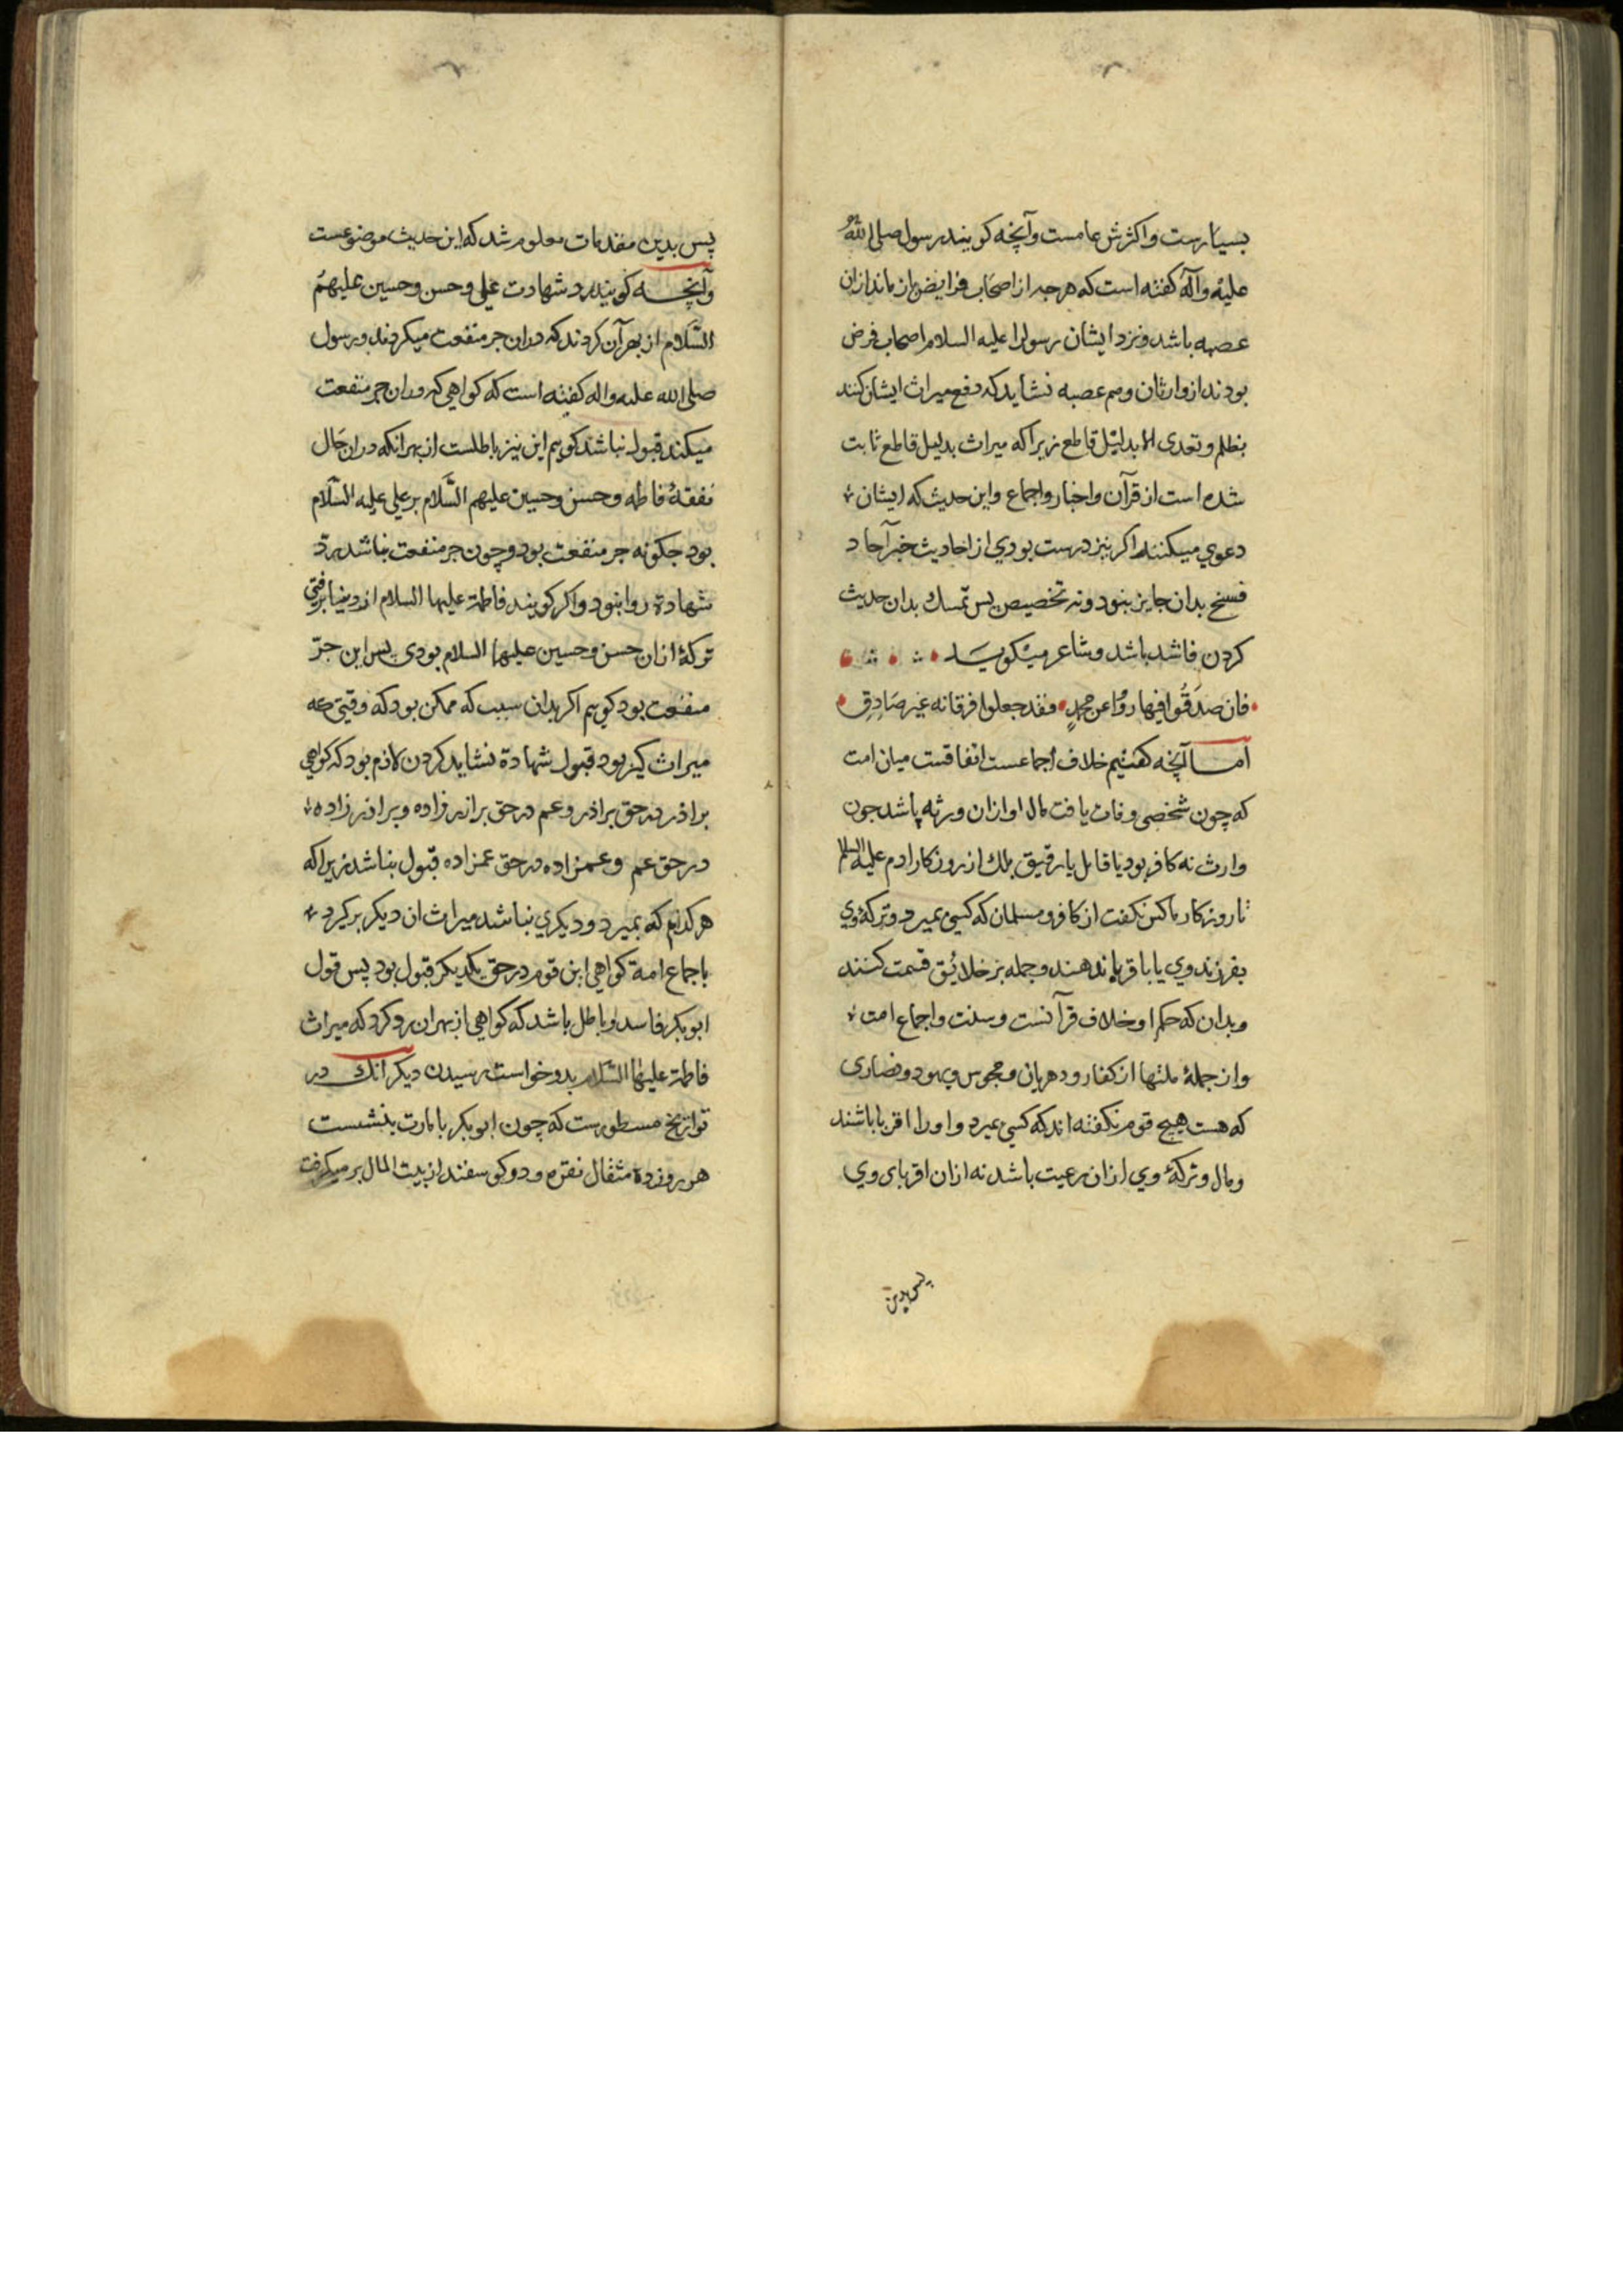 بسیارست واکثرش عامست وآنچه کویند رسول صلی الله
علیه وآله کفته است که هرچه از اصحاب فرایض باز ماند ازان
عصبه باشد ونزد ایشان رسول را علیه السلام اصحاب فرض
بودند از وارثان وهم عصبه نشاید که دفع میراث ایشان کنند
بظلم وتعدی الا بدلیل قاطع زیرا که میراث بدلیل قاطع ثابت
شده است از قرآن واخبار واجماع واین حدیث که ایشان
دعوی میکنند اکر نیز درست بودی از احادیث خبر آحاد
فسخ بدان جایز نبود ونه تخصیص پس تمسك بدان حدیث
کردن فاسد باشد وشاعر میکوید
فان صدقوا فیها رووا عن محمد فقد جعلوا فرقانه غیر صادق
اما آنچه کفتیم خلاف اجماعست اتفاقست میان امت
که چون شخصی وفات یافت مال او ازان ورثه باشد جون
وارث نه کافر بود یا قاتل یا رقیق بلك از روزکار ادم علیه السلام
تا روزکار ما کس نکفت از کافر ومسلمان که کسی بمیرد وترکۀ وی
بفرزند وی یا باقربا ندهند وجمله بر خلایق قسمت کنند
وبدان که حکم او خلاف قرآنست وسنت واجماع امت
واز جملۀ ملتها از کفار ودهریان ومجوس ویهود ونصاری
که هست هیچ قوم نکفته اند که کسی بمیرد واورا اقربا باشند
ومال وترکۀ وی ازان رعیت باشد نه ازان اقربای وی
پس بدین
پس بدین مقدمات معلوم شد که این حدیث موضوعست
وآنچه کویند رد شهادت علی وحسن وحسین علیهم
السلام از بهر آن کردند که دران جر منفعت میکردند ورسول
صلی الله علیه واله کفته است که کواهی که دران جر منفعت
میکند قبول نباشد کویم این نیز باطلست از بهر انکه دران حال
نفقۀ فاطمه وحسن وحسین علیهم السلام بر علی علیه السلام
بود جکونه جر منفعت بود وچون جر منفعت نباشد رد
شهادة روا نبود واکر کویند فاطمة علیها السلام از دنیا برفتی
ترکۀ ازان حسن وحسین علیهما السلام بودی پس این جر
منفعت بود کویم اکر بدان سبب که ممکن بود که وقتی که
میراث کیر بود قبول شهادة نشاید کردن لازم بود که کواهی
براذر در حق براذر وعم در حق براذر زاده وبراذر زاده
در حق عم وعمزاده در حق عمزاده قبول نباشد زیرا که
هر کدام که بمیرد ودیکری نباشد میراث ان دیکر برکیرد
باجماع امة کواهی این قوم در حق یکدیکر قبول بود پس قول
ابو بکر فاسد وباطل باشد که کواهی از بهر ان رد کرد که میراث
فاطمة علیها السلام بدو خواست رسیدن دیکر انك در
تواریخ مسطورست که چون ابو بکر بامارت بنشست
هر روز ده مثقال نقره ودو کوسفند از بیت المال بر میکرفت